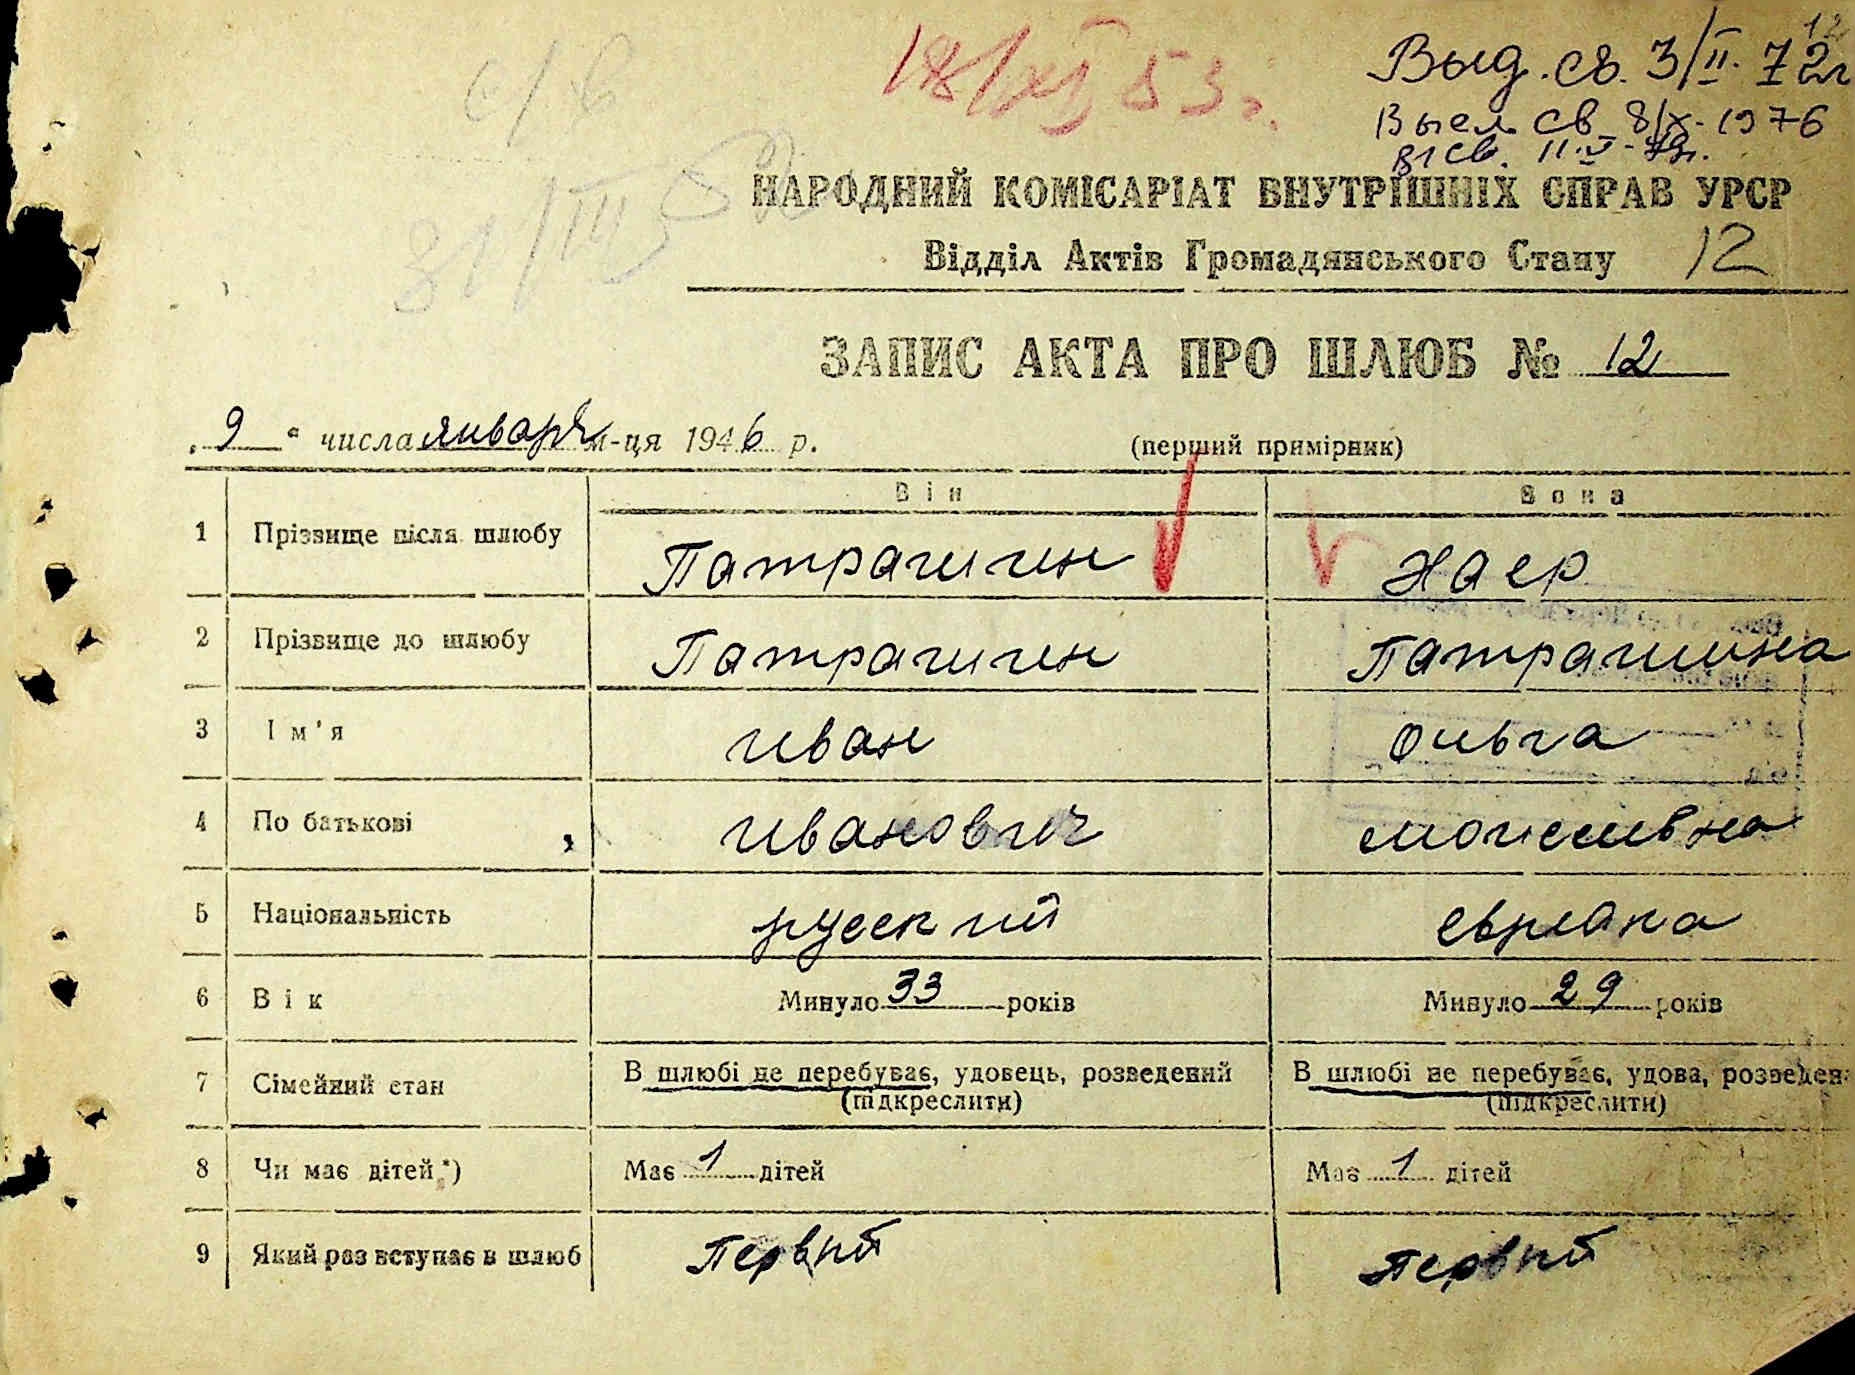 18/XI 53г.
Выд. св. 3/II. 72г
Высл. св. 8/X-1976
вг св. 11.V-79г.
31/III
НАРОДНИЙ КОМІСАРІАТ ВНУТРІШНІХ СПРАВ УРСР
Відділ Актів Громадянського Стану 12
ЗАПИС АКТА ПРО ШЛЮБ № 12
„ 9 “ числа января м-ця 1946 р. (перший примірник)
Він Вона
1 Прізвище після шлюбу Патрашин Наер
2 Прізвище до шлюбу Патрашин Патрашина
3 Ім'я Иван Ольга
4 По батькові Иванович Моисеивна
5 Національність русский еврейка
6 Вік Минуло 33 років Минуло 29 років
7 Сімейний стан В шлюбі не перебуває, удовець, розведений (підкреслити) В шлюбі не перебуває, удова, розведен (підкреслити)
8 Чи має дітей*) Має 1 дітей Має 1 дітей
9 Який раз вступає в шлюб Первий Первий